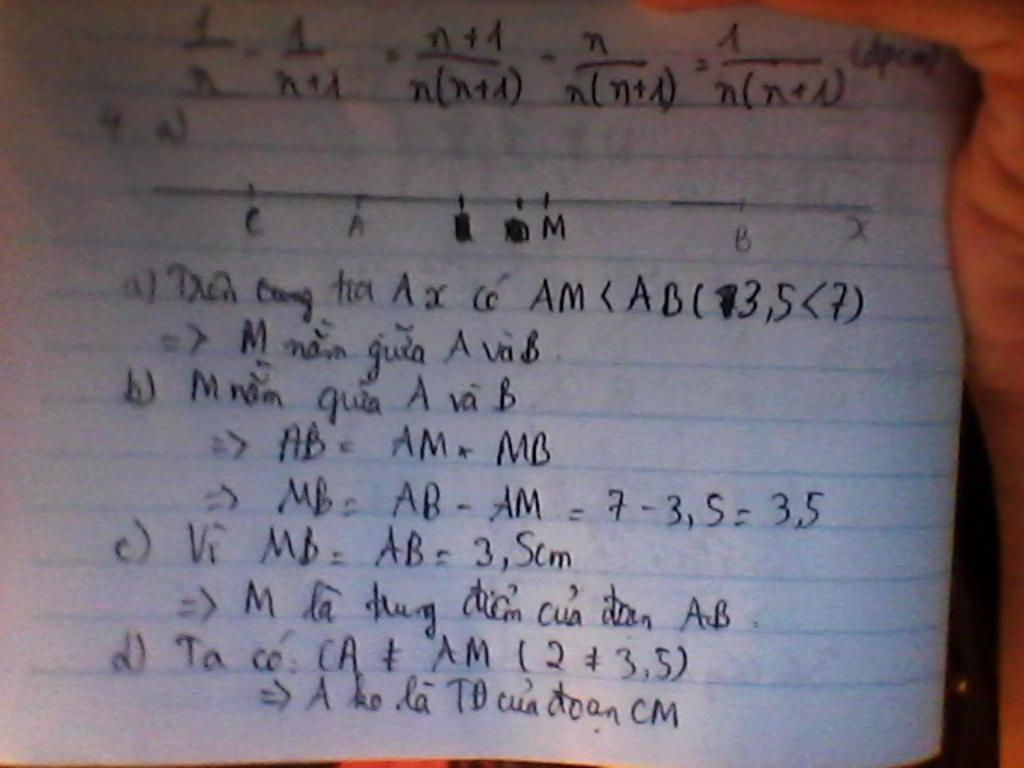 1/n - 1/n+1 = n+1/n(n+1) - n/n(n+1) = 1/n(n+1) (đpcm)
4. a)
C A M B x
a) Trên cùng tia Ax có AM < AB (3,5 < 7)
=> M nằm giữa A và B.
b) M nằm giữa A và B
=> AB = AM + MB
=> MB = AB - AM = 7 - 3,5 = 3,5
c) Vì MB = AB = 3,5cm
=> M là trung điểm của đoạn AB.
d) Ta có: CA ≠ AM (2 ≠ 3,5)
=> A ko là TĐ của đoạn CM